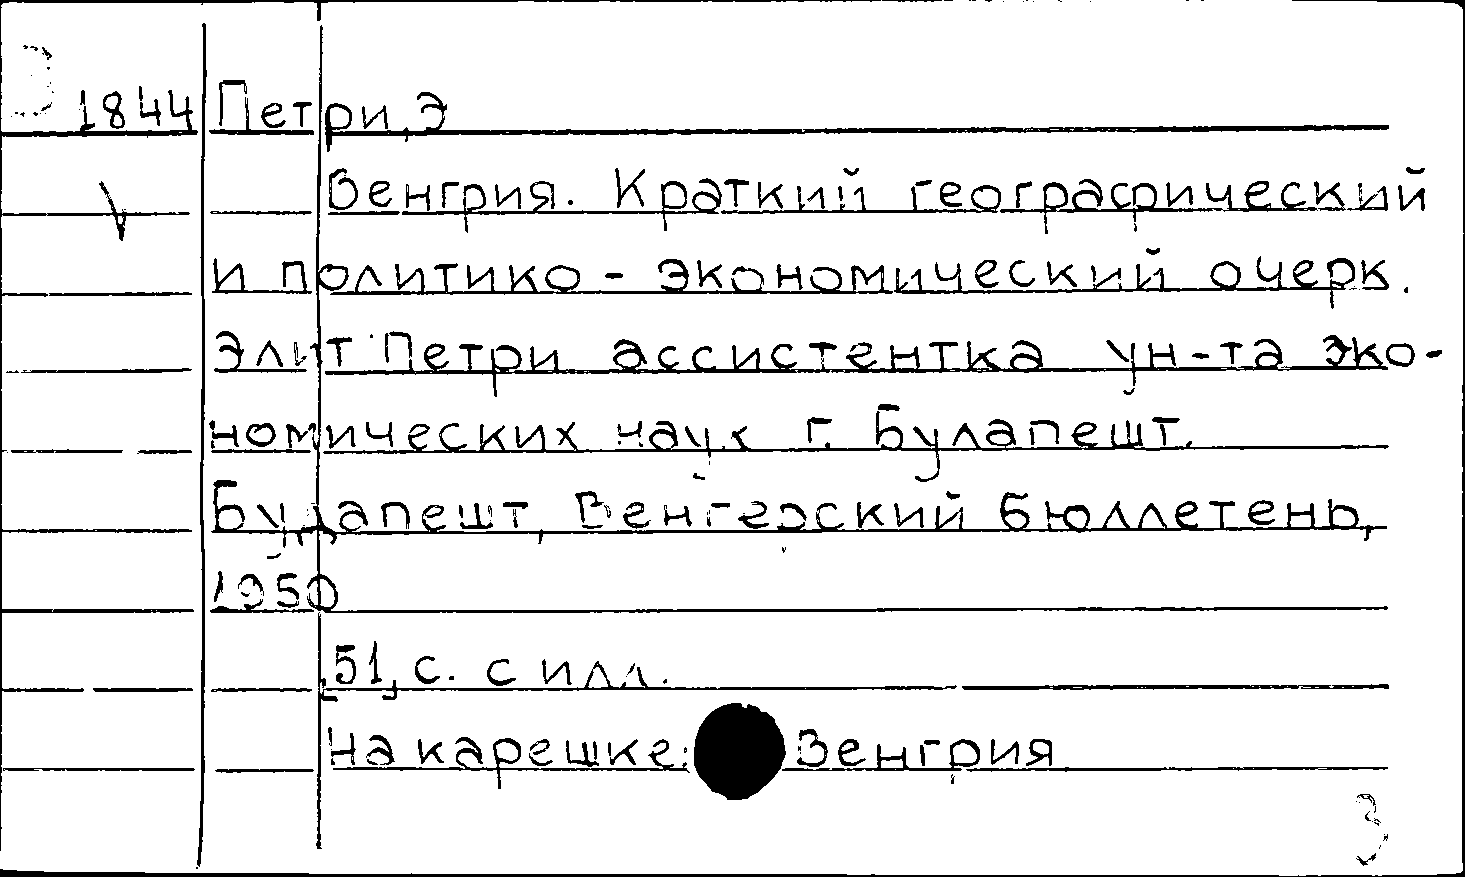 В
1844 Петри, Э
Венгрия. Краткий географический
и политико - экономический очерк.
Элит Петри ассистентка ун-та эко-
номических наук г. Булапешт.
Будапешт, Венгерский бюллетень,
1950
[51] с. с илл.
На карешке: Венгрия
3